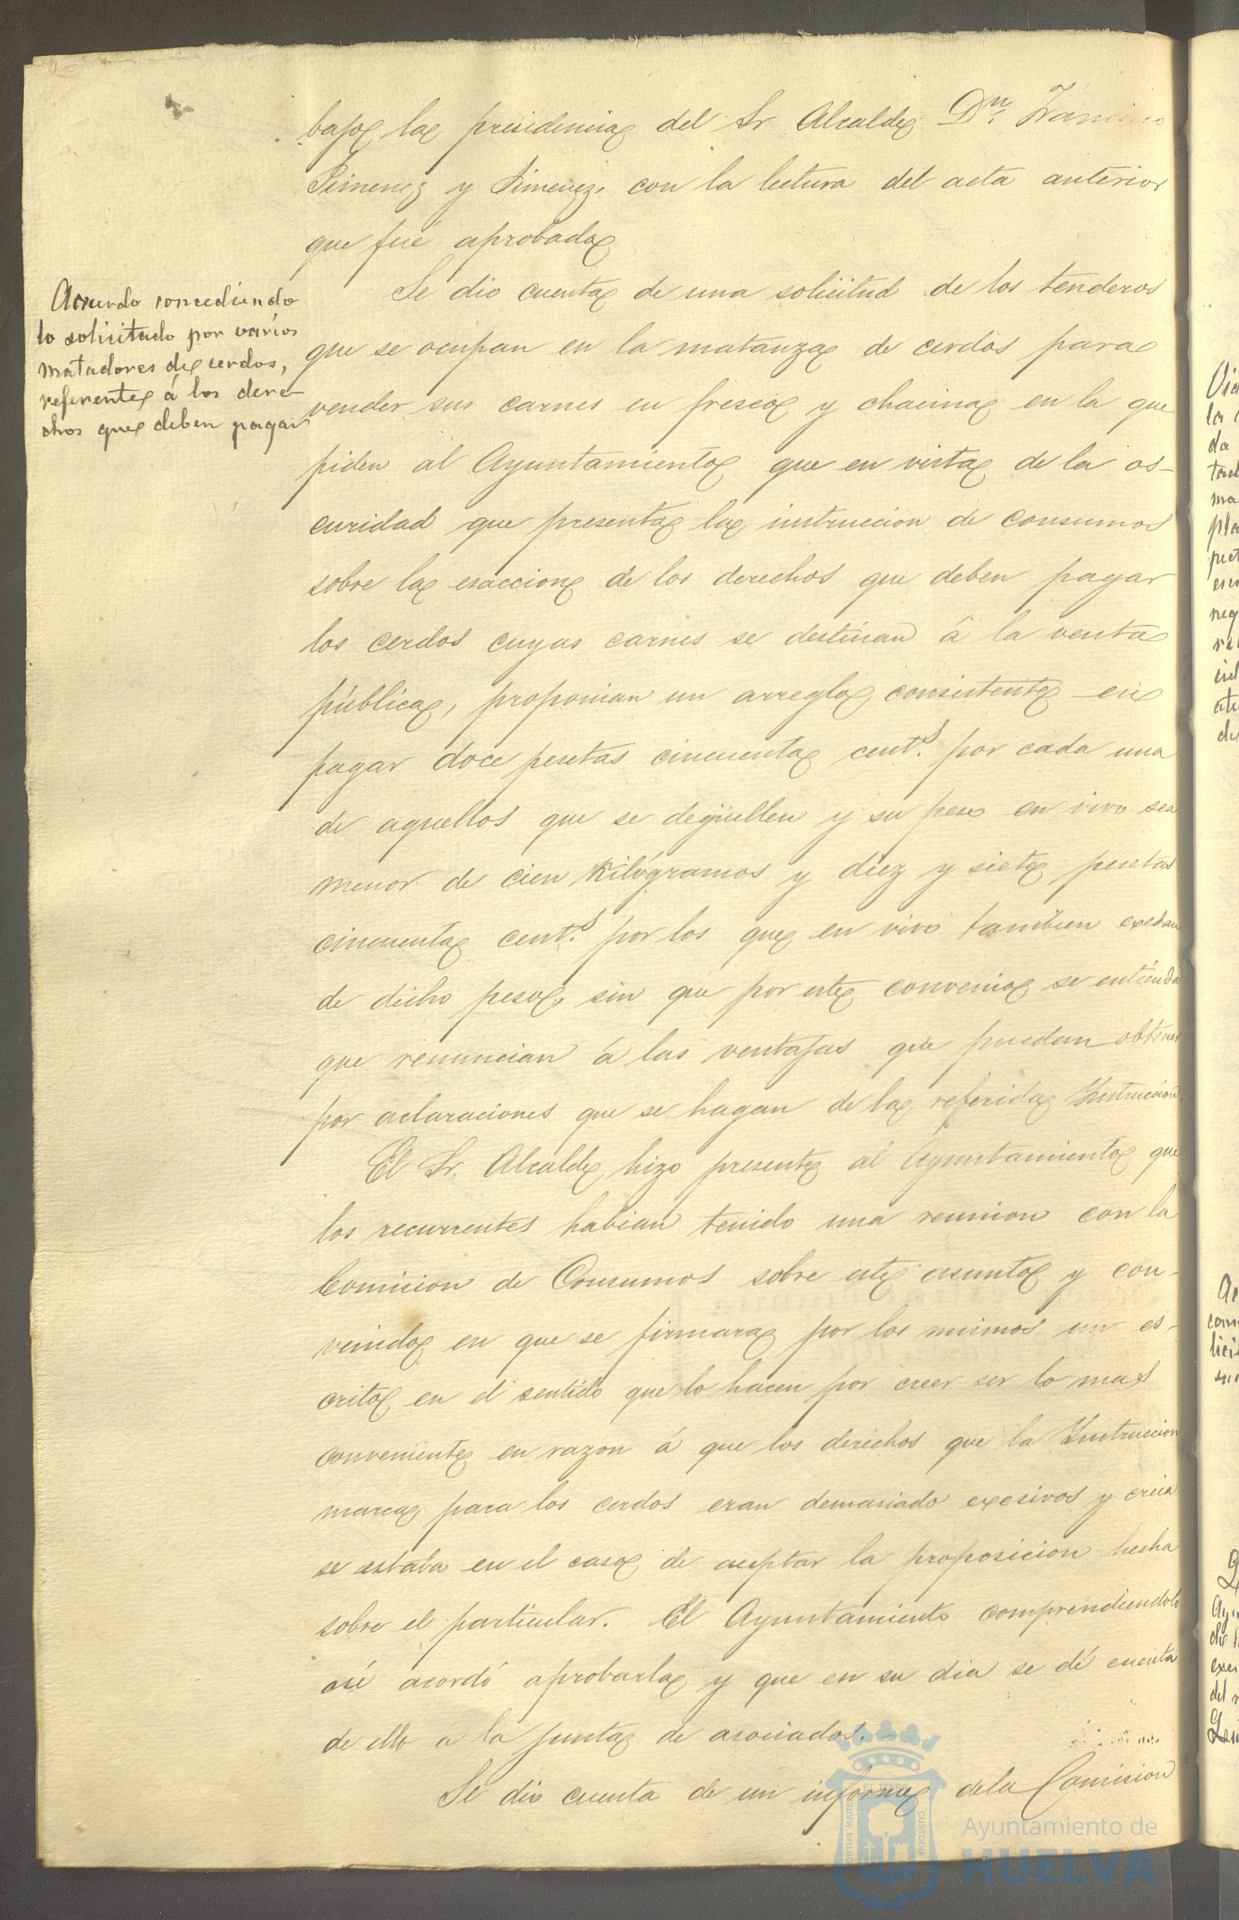 bajo la presidencia del Sr Alcalde Dn. Francisco
Jimenez y Jimenez, con la lectura del acta anterior
que fué aprobada
Acuerdo concediendo
lo solicitado por varios
matadores de cerdos,
referente á los dere-
chos que deben pagar
Se dio cuenta de una solicitud de los tenderos
que se ocupan en la matanza de cerdos para
vender sus carnes en fresco y chacina en la que
piden al Ayuntamiento que en vista de la os-
curidad que presenta la instruccion de consumos
sobre la esaccion de los derechos que deben pagar
los cerdos cuyas carnes se destinan á la venta
pública, proponian un arreglo consistente en
pagar doce pesetas cincuenta cents. por cada una
de aquellos que se degüellen y su peso en vivo sea
menor de cien Kilógramos y diez y siete pesetas
cincuenta cents. por los que en vivo tambien excedan
de dicho peso, sin que por este convenio se entienda
que renuncian á las ventajas que puedan obtener
por aclaraciones que se hagan de la referida Instruccion.
El Sr. Alcalde hizo presente al Ayuntamiento que
los recurrentes habian tenido una reunion con la
Comision de Consumos sobre este asunto y con-
venido en que se firmara por los mismos un es-
crito en el sentido que lo hacen por creer ser lo mas
conveniente en razon á que los derechos que la Instruccion
marca para los cerdos eran demasiado excesivos y creia
se estaba en el caso de aceptar la proposicion hecha
sobre el particular. El Ayuntamiento comprendiendolo
asi acordó aprobarla y que en su dia se dé cuenta
de ello a la junta de asociados.
Se dio cuenta de un informe de la Comision
Ayuntamiento de
HUELVA